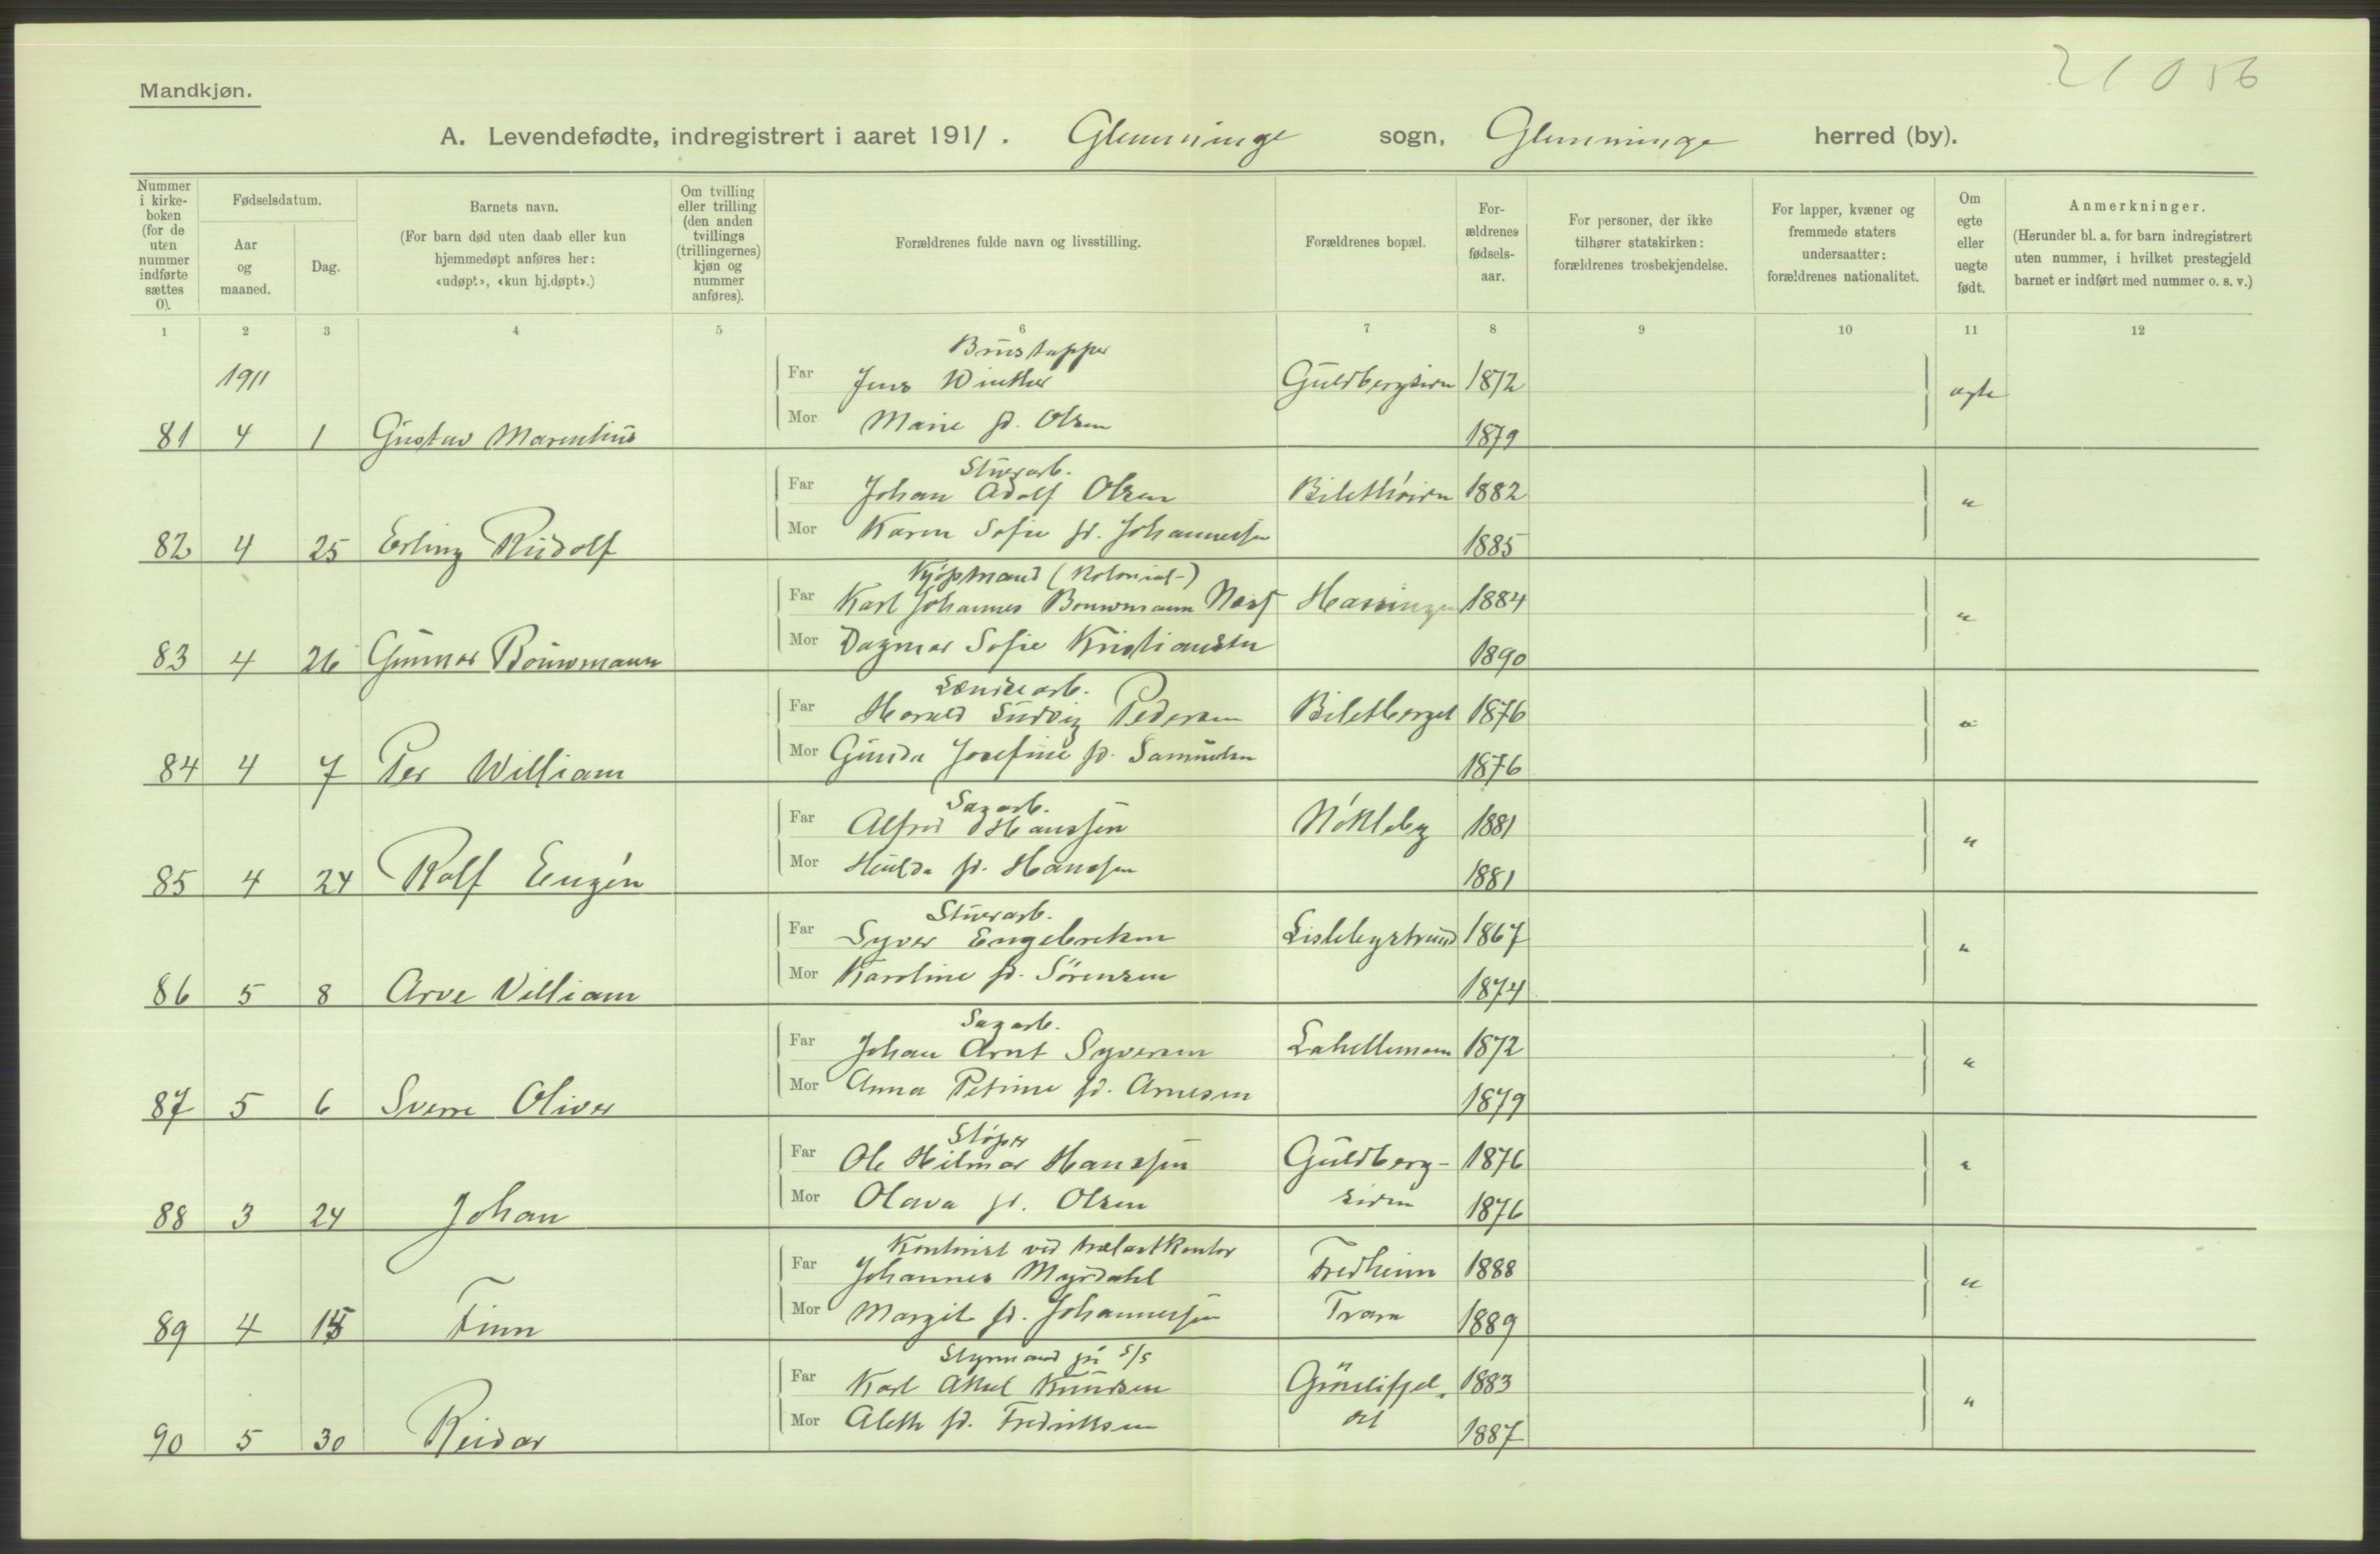 21056
Mandkjøn.
A. Levendefødte, indregistrert i aaret 1911. Glemminge sogn, Glemminge herred (by).
Nummer i kirkeboken (for de uten nummer indførte sættes 0).
Fødselsdatum.
Aar og maaned.
Dag.
Barnets navn.
(For barn død uten daab eller kun hjemmedøpt anføres her: «udøpt», «kun hj.døpt».)
Om tvilling eller trilling (den anden tvillings (trillingernes) kjøn og nummer anføres).
Forældrenes fulde navn og livsstilling.
Forældrenes bopæl.
Forældrenes fødselsaar.
For personer, der ikke tilhører statskirken: forældrenes trosbekjendelse.
For lapper, kvæner og fremmede staters undersaatter: forældrenes nationalitet.
Om egte eller uegte født.
Anmerkninger.
(Herunder bl. a. for barn indregistrert uten nummer, i hvilket prestegjeld barnet er indført med nummer o. s. v.)
1 2 3 4 5 6 7 8 9 10 11 12
Brustapper
1911 Far Jens Winther Guldbergsiden 1872 egte
81 4 1 Gustav Marentius Mor Marie fd. Olsen 1879
Stuerarb.
Far Johan Adolf Olsen 1882 "
82 4 25 Erling Rudolf Mor Karen Sofie fd. Johannessen 1885
Kjøpmand (Kolonial-)
Far Karl Johannes Bouwmann Næss Hassingen 1884 "
83 4 26 Gunnar Bouwmann Mor Dagmar Sofie Kristiansen 1890
Far Harald Ludvig Pedersen Biletberget 1876 "
84 4 7 Per William Mor Gunda Josefine fd. Samuelsen 1876
Sagarb.
Far Alfred Hanssen Nøkleby 1881 "
85 4 24 Rolf Eugén Mor Hulda fd. Hanssen 1881
Stuerarb.
Far Syver Engebretsen Lislebystrand 1867 "
86 5 8 Arve Villiam Mor Karoline fd. Sørensen 1874
Sagarb.
Far Johan Arnt Syversen Lahellemoen 1872 "
87 5 6 Sverre Oliver Mor Anna Petrine fd. Arnesen 1879
Støper
Far Ole Hilmar Hanssen Guldberg- 1876 "
88 3 24 Johan Mor Olava fd. Olsen siden 1876
Kontorist ved trælastkontor
Far Johannes Myrdahl Fredheim 1888 "
89 4 15 Finn Mor Margit fd. Johannessen Trara 1889
Styrmand på S/S
Far Karl Aksel Knudsen 1883 "
90 5 30 Reidar Mor Aleth fd. Fredriksen 1887